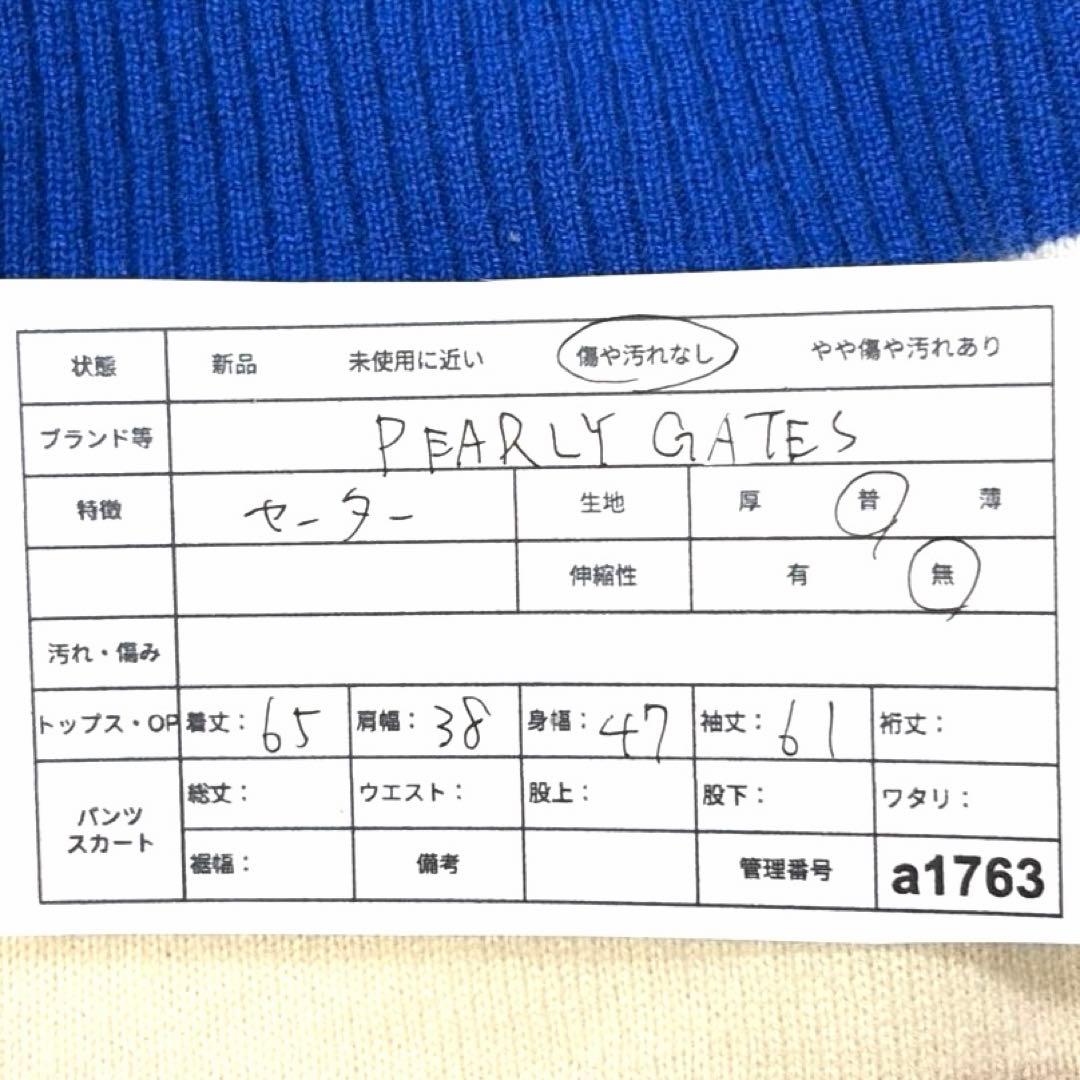 状態 新品 未使用に近い 傷や汚れなし やや傷や汚れあり
ブランド等 PEARLY GATES
特徴 セーター 生地 厚 普 薄
伸縮性 有 無
汚れ・傷み
トップス・OP 着丈：65 肩幅：38 身幅：47 袖丈：61 裄丈：
パンツ
スカート
総丈： ウエスト： 股上： 股下： ワタリ：
裾幅： 備考 管理番号 a1763